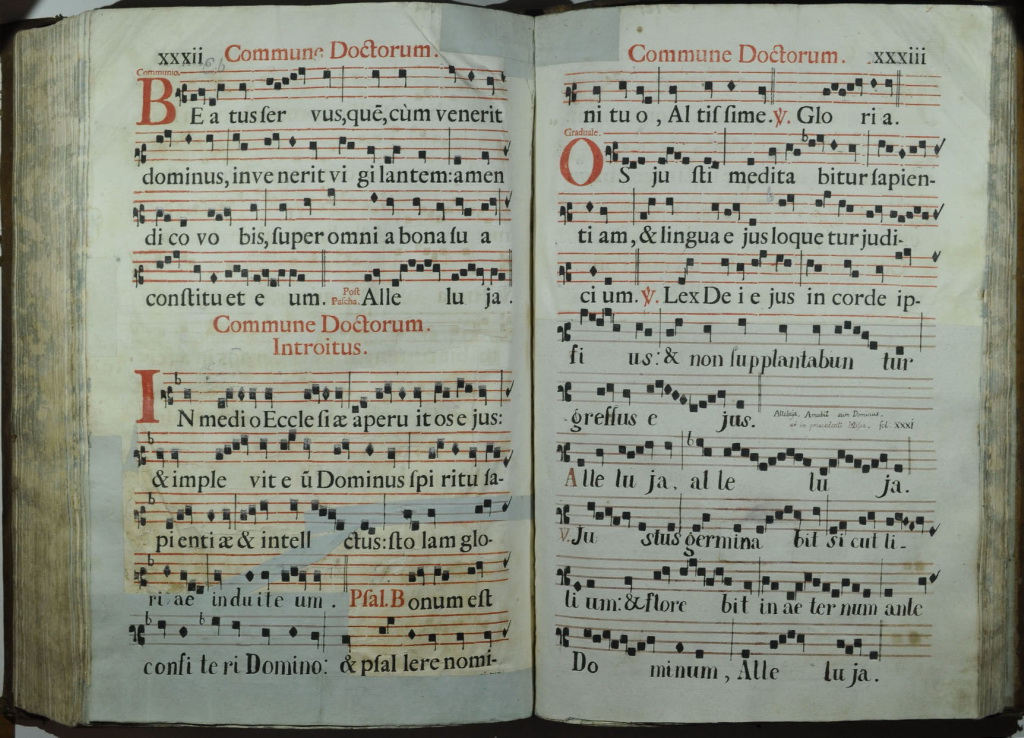 xxxii Commune Doctorum.
Communio.
BEa tus ser vus, quē, cùm venerit
dominus, inve nerit vi gi lantem: amen
di co vo bis, super omni a bona su a
constitu et e um. Post Pascha. Alle lu ja.
Commune Doctorum.
Introitus.
IN medi o Eccle si æ aperu it os e jus:
& imple vit e ū Dominus spi ritu sa-
pi enti æ & intell ctus: sto lam glo-
ri ae indu it e um. Psal. Bonum est
confi te ri Domino: & psal lere nomi-
Commune Doctorum. xxxiii
ni tu o, Al tis sime. ℣. Glo ri a.
Graduale.
OS ju sti medita bitur sapien-
ti am, & lingua e jus loque tur judi-
ci um. ℣. Lex De i e jus in corde ip-
si us: & non supplantabun tur
gressus e jus.
Alleluja. Amabit eum Dominus.
ut in precedenti Missa. fol. XXXI
Alle lu ja, al le lu ja.
V. Ju stus germina bit si cut li-
li um: & flore bit in ae ter num ante
Do minum, Alle lu ja.